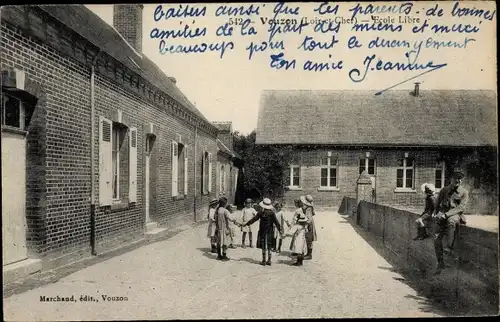 542 - Vouzon (Loir-et-Cher) - École Libre
baisers ainsi que les parents. de bonnes
amitiés de la part des miens et merci
beaucoup pour tout le dérangement
Ton amie Jeannine
Marchand, édit., Vouzon